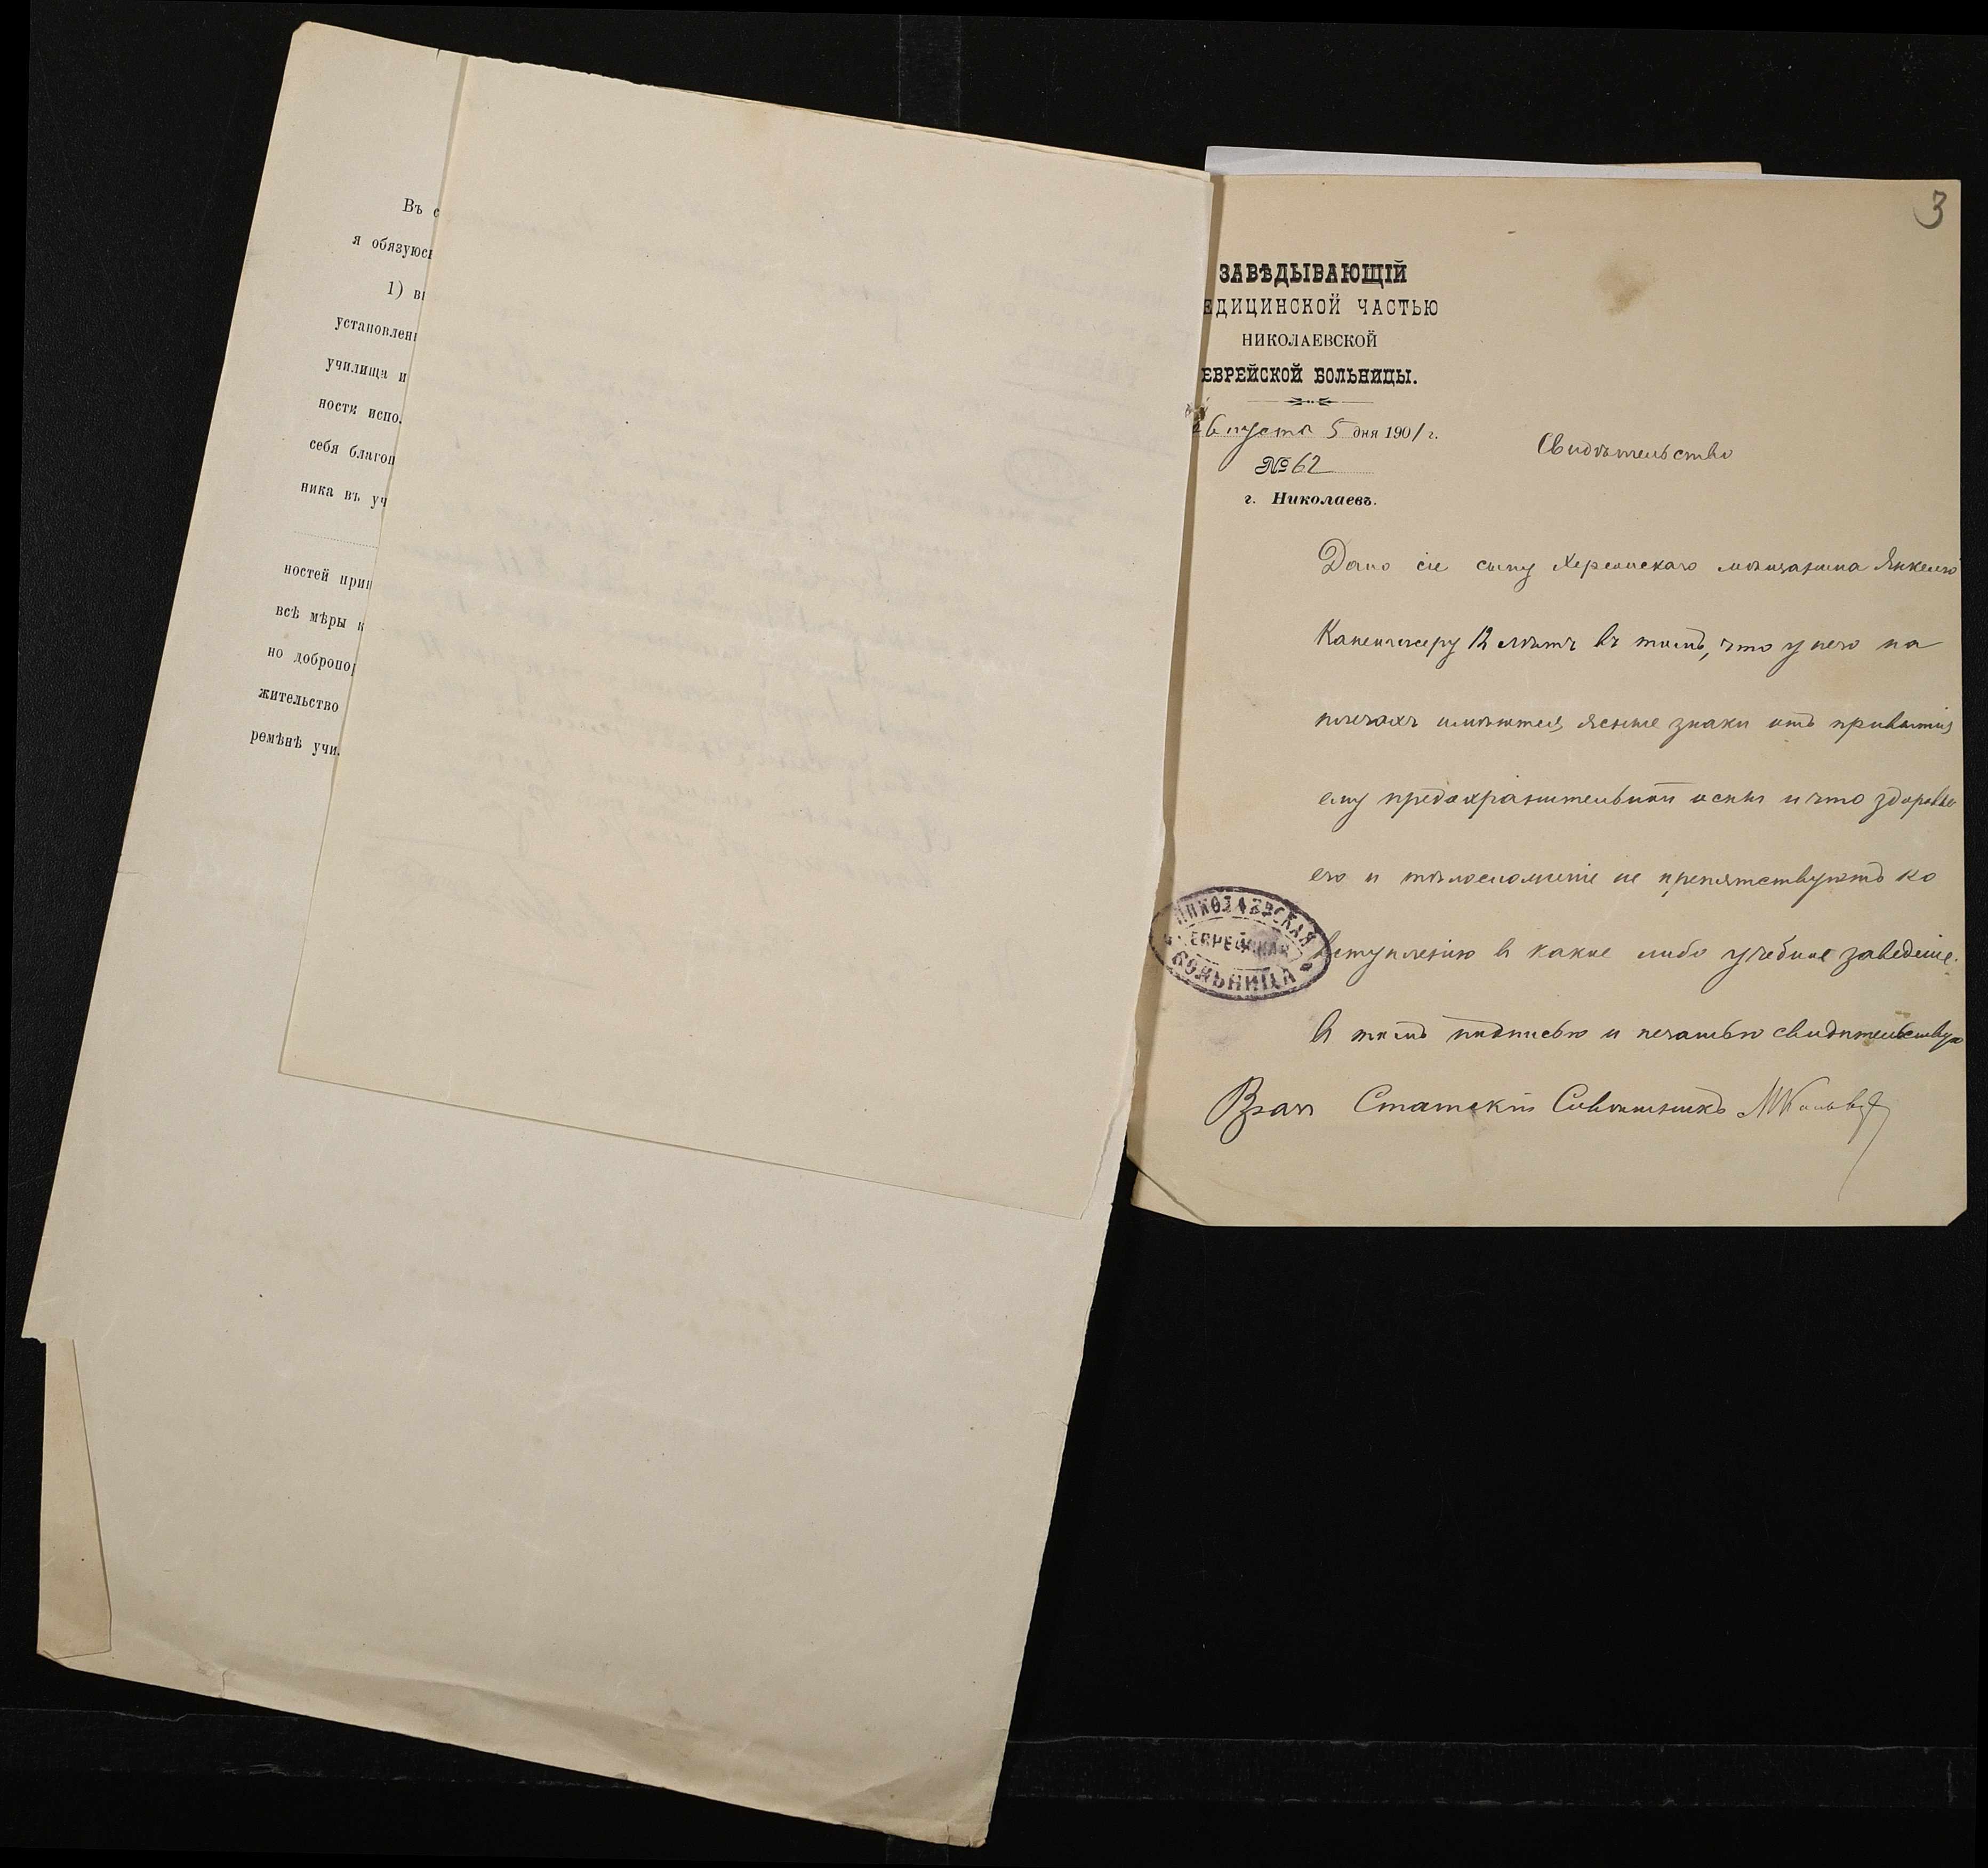 Въ с
я обязуюсь
1) вн
установлен
училища и
ности испо
себя благоп
ника въ уч
ностей прин
всѣ мѣры к
но добропо
жительство
ремѣнѣ учи
3
ЗАВѢДЫВАЮЩІЙ
ЕДИЦИНСКОЙ ЧАСТЬЮ
НИКОЛАЕВСКОЙ
ЕВРЕЙСКОЙ БОЛЬНИЦЫ.
августа 5 дня 1901 г.
№ 62
г. Николаевъ.
Свидѣтельство
Дано сіе сыну Херсонскаго мѣщанина Янкелю
12 лѣтъ въ томъ, что у него на
плечахъ имѣются ясные знаки отъ привитія
ему предохранительной оспы и что здоровье
его и тѣлосложеніе не препятствуютъ ко
вступленію въ какое либо учебное заведеніе.
въ томъ подписью и печатью свидѣтельствую
Врач Статскій Совѣтникъ
НИКОЛАЕВСКАЯ
ЕВРЕЙСКАЯ
БОЛЬНИЦА